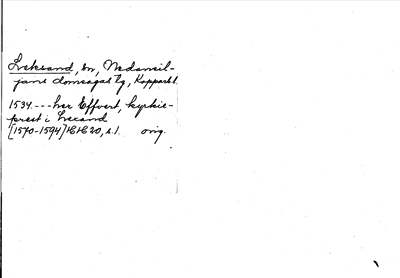 Leksand, sn, Nedansil-
jans domsagas tg, Kopparb l.
1534 --- her Effvert, kyrkie-
prest i Lecxand
[1570-1594] HH 20, s.1. orig.